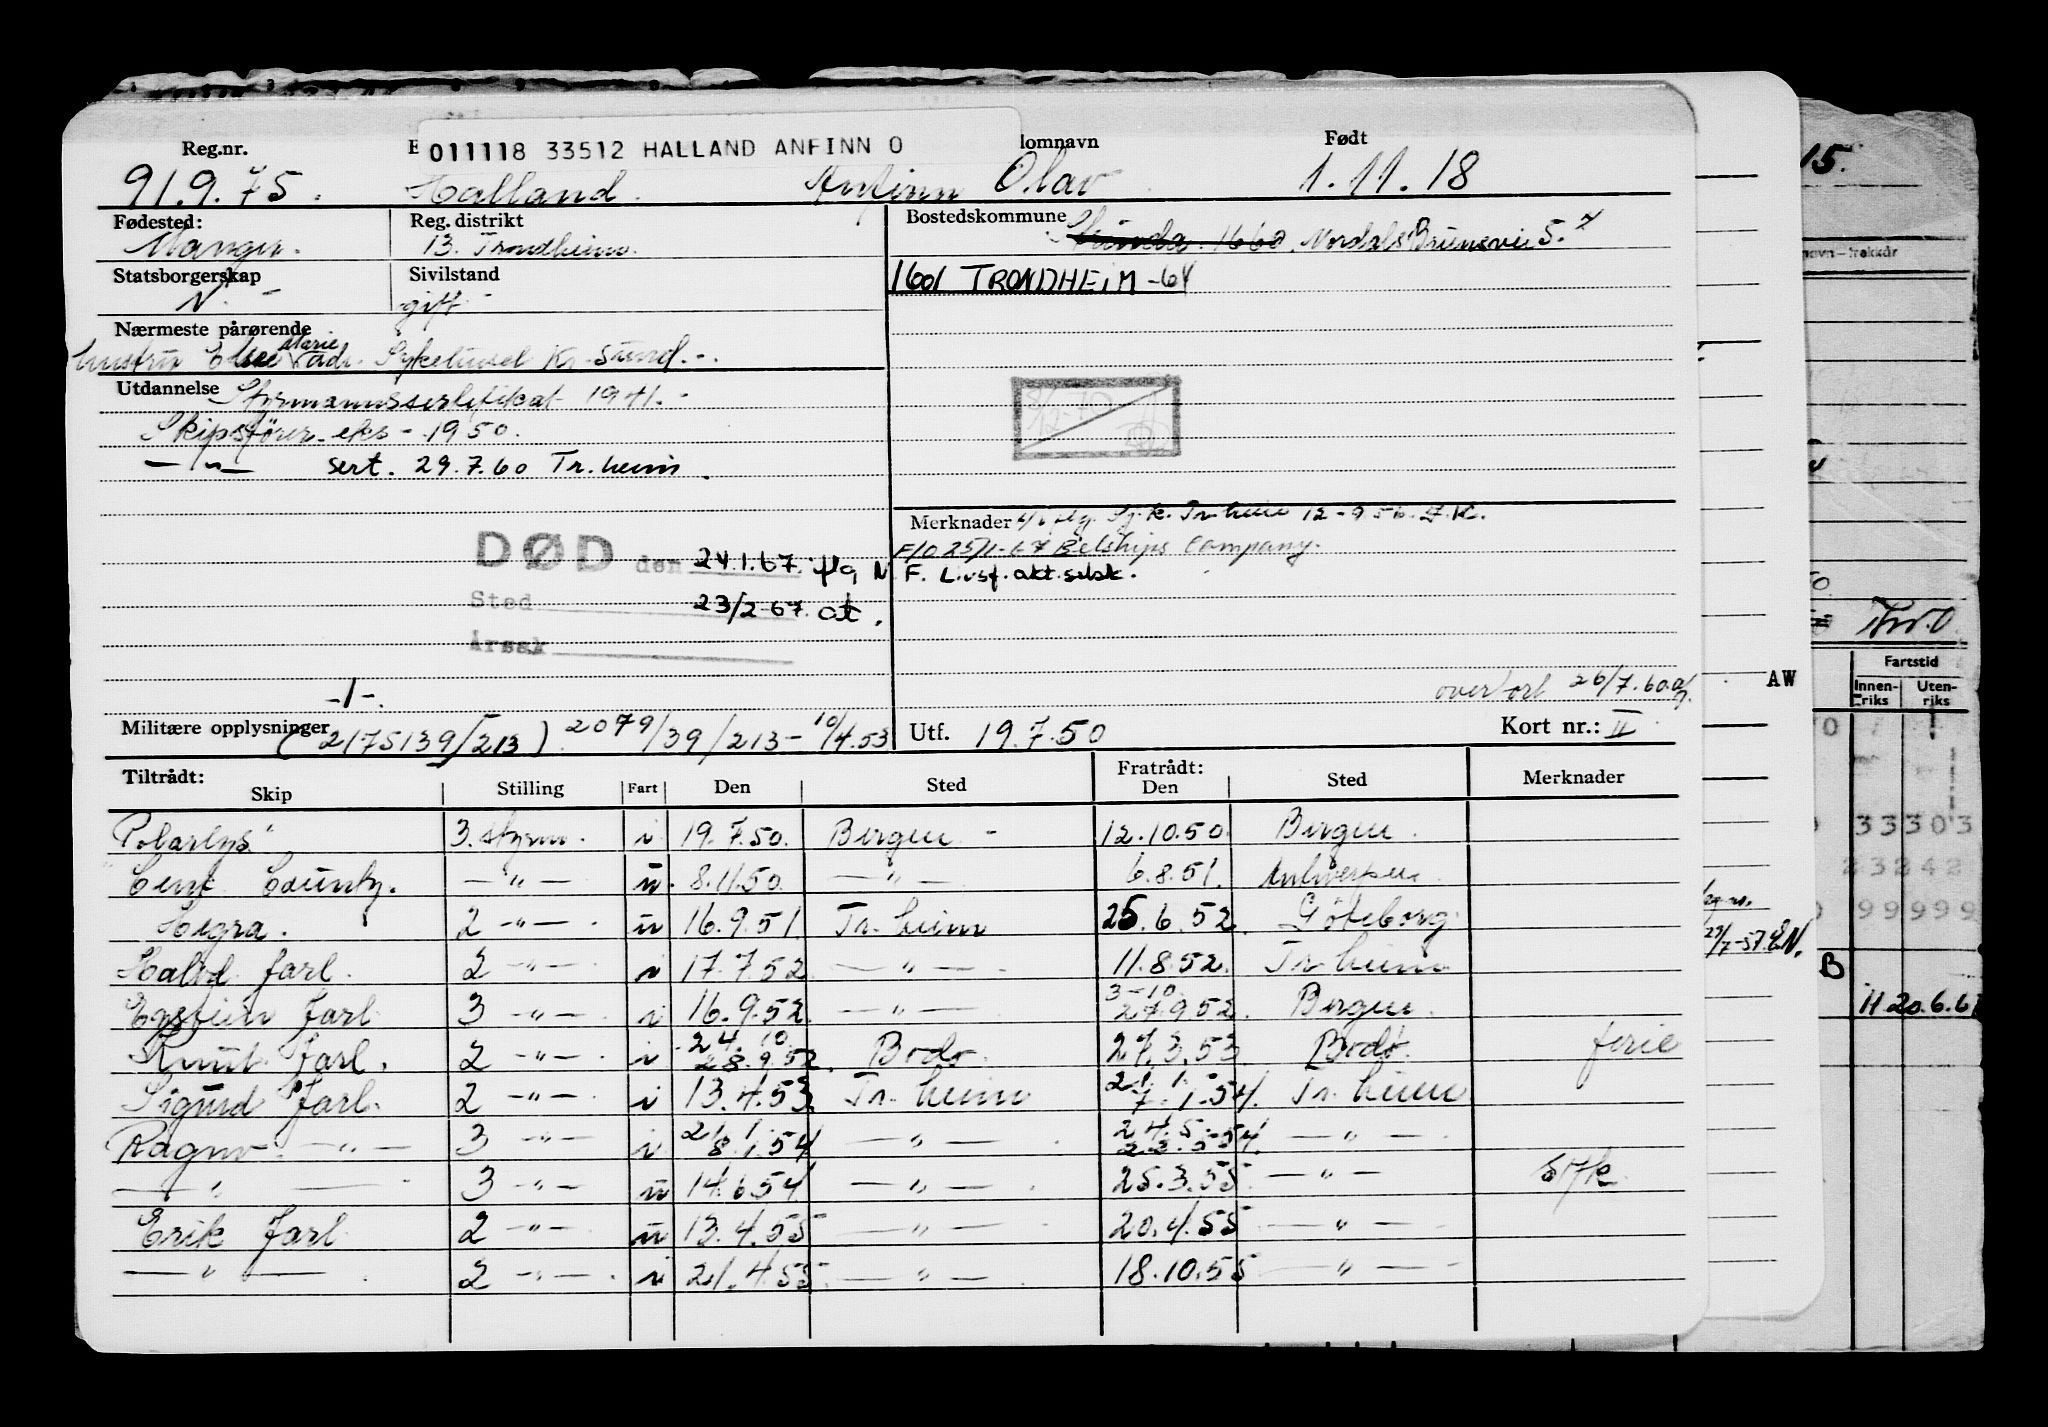 011118 33512 HALLAND ANFINN O
Reg.nr. E lomnavn Født
91.9.75. Halland. Anfinn Olav 1.11.18
Fødested: Reg. distrikt Bostedskommune
Manger. 13. Trondheim. Strinda. 1660. Nordals Brunsvei 5.
Statsborgerskap Sivilstand
N. - gift - 1601 TRONDHEIM -64
Nærmeste pårørende
hustru Else Marie adr. Sykehuset Kr. Sund. -.
Utdannelse Styrmannssertifikat 1941. -
Skipsfører-eks - 1950.
— " — sert. 29.7.60 Tr.heim.
Merknader Sj.k. Tr.heim 12-9 56. J.K.
F/O 25/1-67 Belships Company.
DØD den 24.1.67. flg N. F. Livsf. akt.selsk.
Sted 23/2-67. at.
Årsak
-1-. overført 26/7.60
Militære opplysninger (2175139/213). 2079/39/213 - 10/4.53 Utf. 19.7.50 Kort nr.: II
Tiltrådt: Fratrådt:
Skip Stilling Fart Den Sted Den Sted Merknader
Polarlys 3. styrm. i 19.7.50. Bergen - 12.10.50. Bergen.
Cent County. — " — u. 8.11.50. — " — 6.8.51. Antwerpen
Hegra. 2 — " — . u 16.9.51. Tr.heim 25.6.52. Göteborg.
Halvd Jarl. 2 — " — i 17.7.52 — " — . 11.8.52. Tr.heim
3-10
Eystein Jarl 3 — " — . i 16.9.52. — " — 27.9.52. Bergen.
24. 10.
Knut Jarl. 2 — " — . i 28.9.52. Bodø. 27.3.53 Bodø. ferie
21. 1.
Sigurd Jarl. 2 — " — i 13.4.53. Tr.heim 7.1.54. Tr.heim
21. 1. 24.5.
Ragnv. — " — 3 — " — i 8.1.54 — " — 22.5.54. — " —
— " — 3 — " — u 14.6.54 — " — . 25.3.55 — " — syk.
Erik Jarl 2 — " — u 13.4.55 — " — 20.4.55 — " —
— " — . 2 — " — . i 21.4.55. — " — 18.10.55 — " —
15.
navn-trekkår
AW
Fartstid
Innenriks Utenriks
33303
23242
99999
27/7-57. EN.
B
11 20.6.6